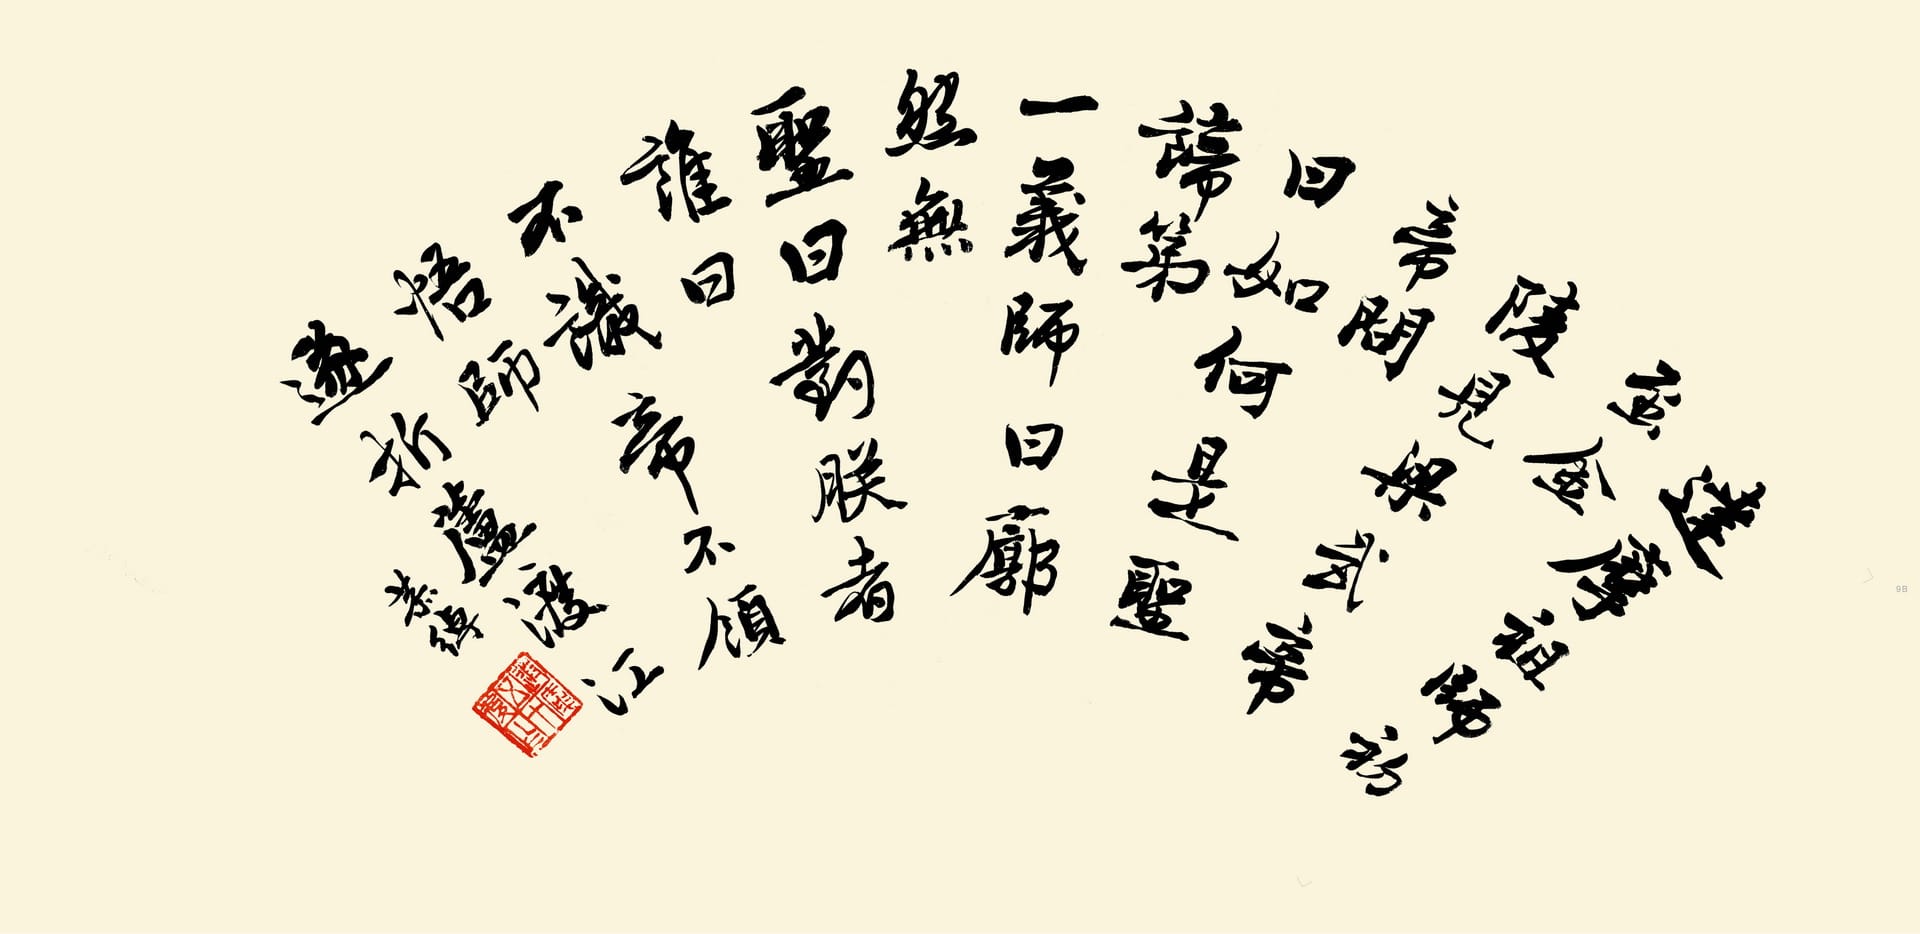 達摩祖師初
金
陵見與武帝
帝問
曰如何是聖
諦第
一義師曰廓
然無
聖曰對朕者
誰曰
不識帝不領
悟師
遂折蘆渡江
9B